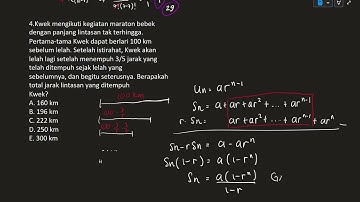 29
4.Kwek mengikuti kegiatan maraton bebek
dengan panjang lintasan tak terhingga.
Pertama-tama Kwek dapat berlari 100 km
sebelum lelah. Setelah istirahat, Kwek akan
lelah lagi setelah menempuh 3/5 jarak yang
telah ditempuh sejak lelah yang
sebelumnya, dan begitu seterusnya. Berapakah
total jarak lintasan yang ditempuh
Kwek?
A. 160 km
B. 196 km
C. 222 km
D. 250 km
E. 300 km
100 km
Un = ar^{n-1}
Sn = a + ar + ar² + ... + ar^{n-1}
r.Sn = ar + ar² + ... + ar^{n-1} + ar^n
Sn - rSn = a - ar^n
Sn(1-r) = a(1-r^n)
Sn = a(1-r^n)
1-r